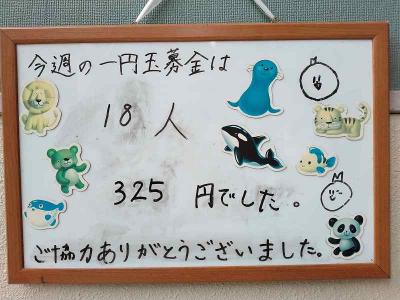 今週の一円玉募金は
18人
325円でした。
ご協力ありがとうございました。